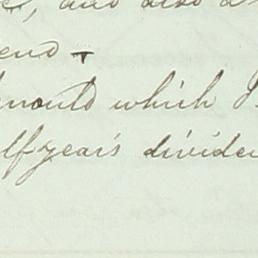 , and also a
end -
amount which I
alf year's divide